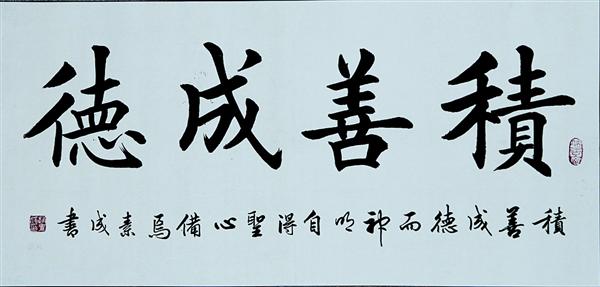 積善成德
積善成德而神明自得聖心備焉素成書